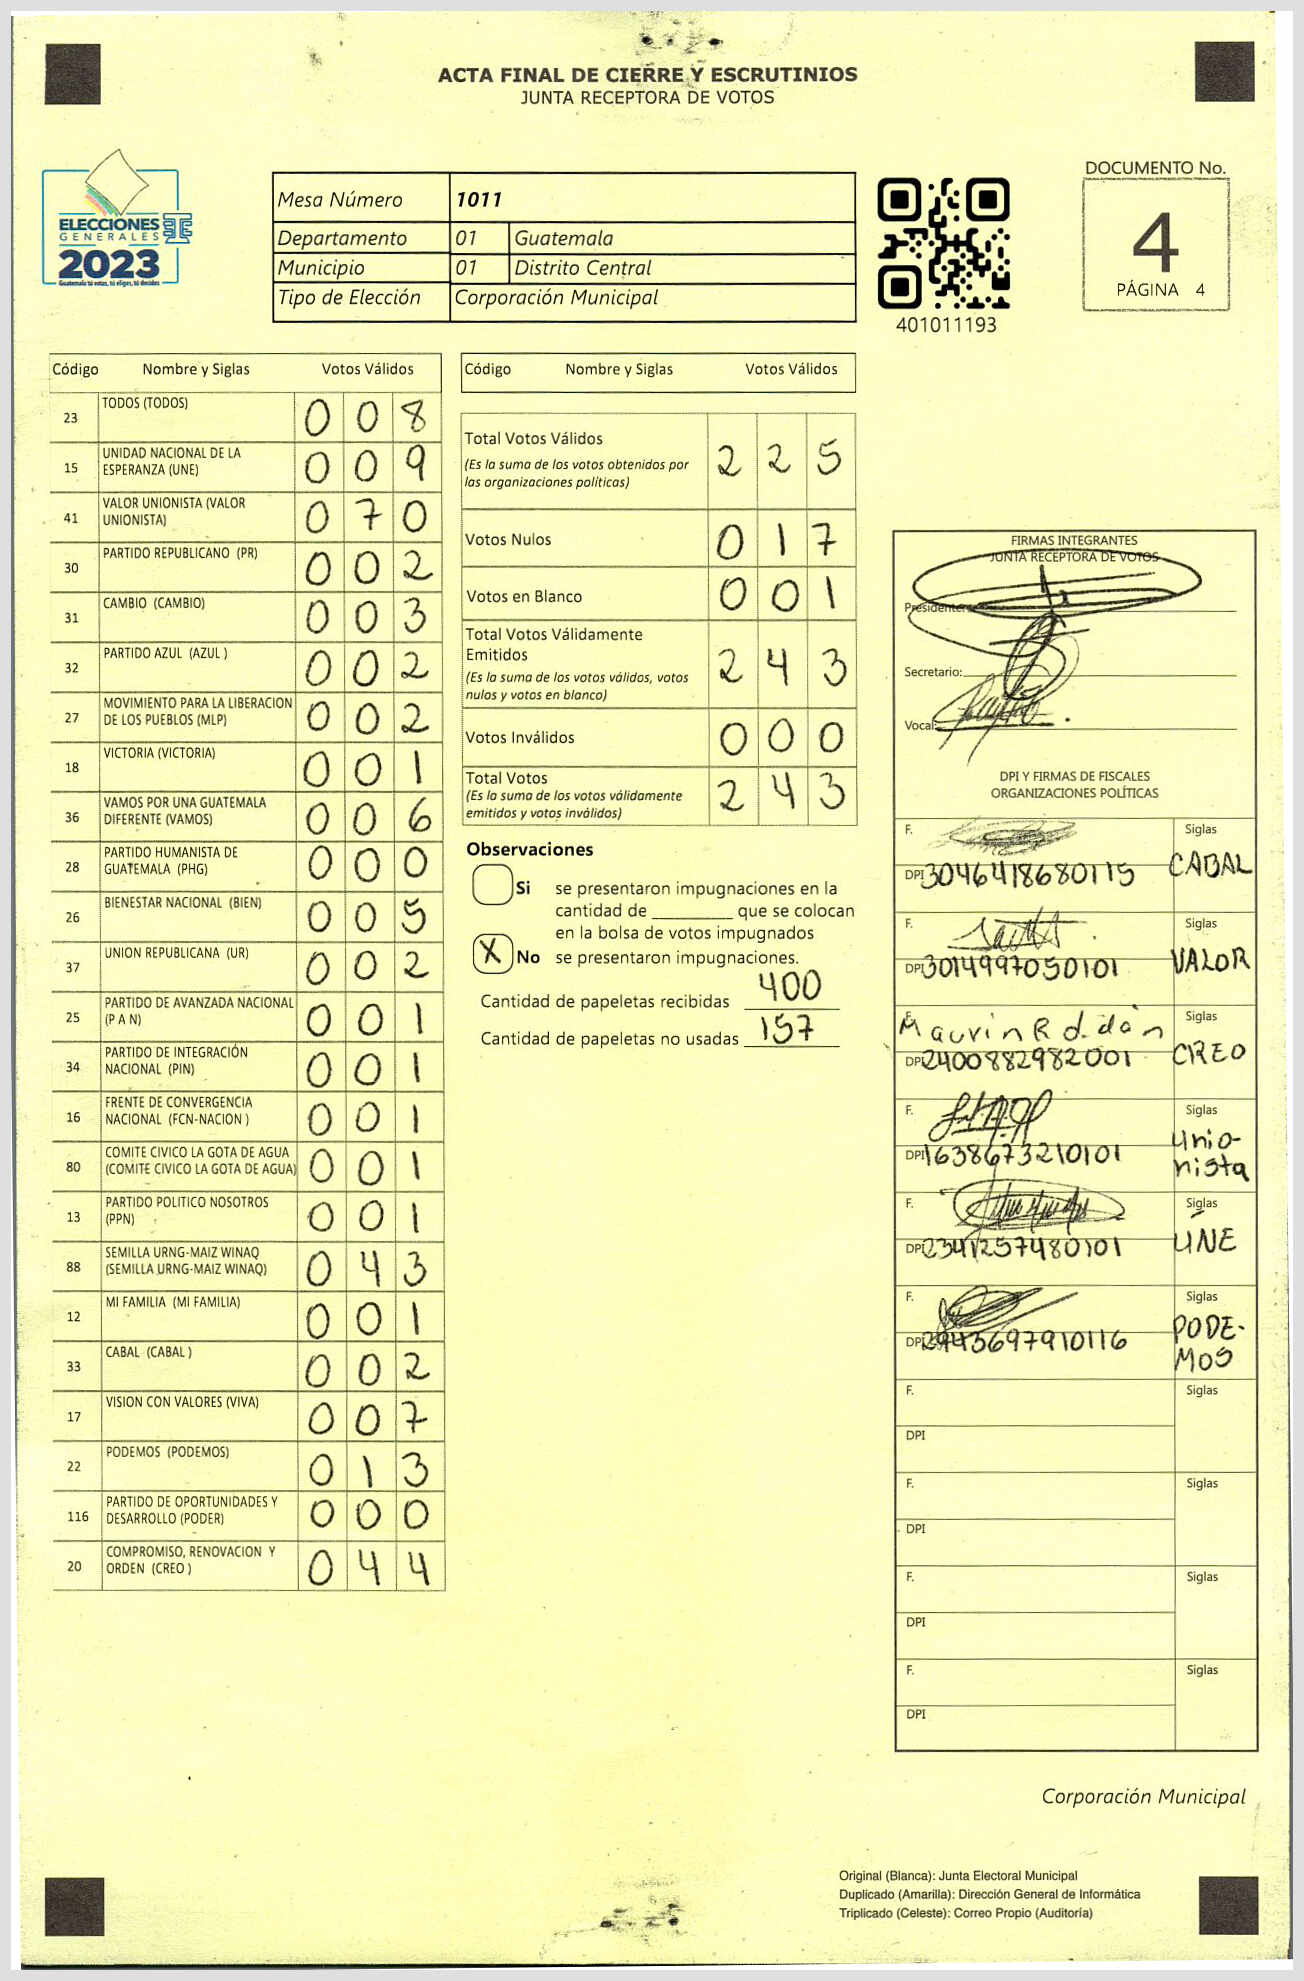 ACTA FINAL DE CIERRE Y ESCRUTINIOS
JUNTA RECEPTORA DE VOTOS
ELECCIONES
GENERALES
2023
Guatemala tú votas, tú eliges, tú decides
Mesa Número 1011
Departamento 01 Guatemala
Municipio 01 Distrito Central
Tipo de Elección Corporación Municipal
401011193
DOCUMENTO No.
4
PÁGINA 4
Código Nombre y Siglas Votos Válidos
23 TODOS (TODOS) 0 0 8
15 UNIDAD NACIONAL DE LA ESPERANZA (UNE) 0 0 9
41 VALOR UNIONISTA (VALOR UNIONISTA) 0 7 0
30 PARTIDO REPUBLICANO (PR) 0 0 2
31 CAMBIO (CAMBIO) 0 0 3
32 PARTIDO AZUL (AZUL ) 0 0 2
27 MOVIMIENTO PARA LA LIBERACION DE LOS PUEBLOS (MLP) 0 0 2
18 VICTORIA (VICTORIA) 0 0 1
36 VAMOS POR UNA GUATEMALA DIFERENTE (VAMOS) 0 0 6
28 PARTIDO HUMANISTA DE GUATEMALA (PHG) 0 0 0
26 BIENESTAR NACIONAL (BIEN) 0 0 5
37 UNION REPUBLICANA (UR) 0 0 2
25 PARTIDO DE AVANZADA NACIONAL (P A N) 0 0 1
34 PARTIDO DE INTEGRACIÓN NACIONAL (PIN) 0 0 1
16 FRENTE DE CONVERGENCIA NACIONAL (FCN-NACION ) 0 0 1
80 COMITE CIVICO LA GOTA DE AGUA (COMITE CIVICO LA GOTA DE AGUA) 0 0 1
13 PARTIDO POLITICO NOSOTROS (PPN) 0 0 1
88 SEMILLA URNG-MAIZ WINAQ (SEMILLA URNG-MAIZ WINAQ) 0 4 3
12 MI FAMILIA (MI FAMILIA) 0 0 1
33 CABAL (CABAL ) 0 0 2
17 VISION CON VALORES (VIVA) 0 0 7
22 PODEMOS (PODEMOS) 0 1 3
116 PARTIDO DE OPORTUNIDADES Y DESARROLLO (PODER) 0 0 0
20 COMPROMISO, RENOVACION Y ORDEN (CREO ) 0 4 4
Código Nombre y Siglas Votos Válidos
Total Votos Válidos 2 2 5
(Es la suma de los votos obtenidos por
las organizaciones políticas)
Votos Nulos 0 1 7
Votos en Blanco 0 0 1
Total Votos Válidamente
Emitidos 2 4 3
(Es la suma de los votos válidos, votos
nulos y votos en blanco)
Votos Inválidos 0 0 0
Total Votos 2 4 3
(Es la suma de los votos válidamente
emitidos y votos inválidos)
Observaciones
Si se presentaron impugnaciones en la
cantidad de ________ que se colocan
en la bolsa de votos impugnados
X No se presentaron impugnaciones.
Cantidad de papeletas recibidas 400
Cantidad de papeletas no usadas 157
FIRMAS INTEGRANTES
JUNTA RECEPTORA DE VOTOS
Presidente:
Secretario:
Vocal:
DPI Y FIRMAS DE FISCALES
ORGANIZACIONES POLÍTICAS
F. Siglas
DPI 3046418680115 CABAL
F. Siglas
DPI 3014997050101 VALOR
F. Siglas
DPI 2400882982001 CREO
F. Siglas
DPI 1638673210101 Unio-
nista
F. Siglas
DPI 2341257480101 UNE
F. Siglas
DPI 2943697910116 PODE-
MOS
F. Siglas
DPI
F. Siglas
DPI
F. Siglas
DPI
F. Siglas
DPI
Corporación Municipal
Original (Blanca): Junta Electoral Municipal
Duplicado (Amarilla): Dirección General de Informática
Triplicado (Celeste): Correo Propio (Auditoría)